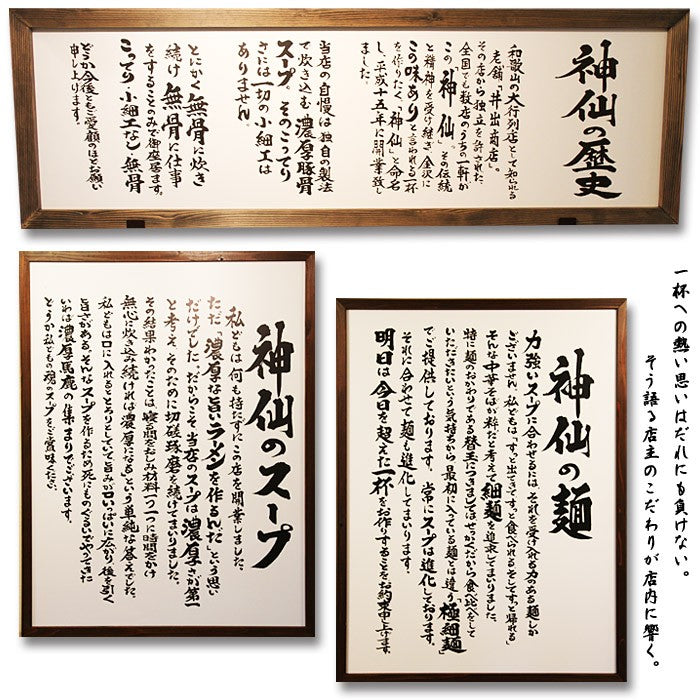 神仙の歴史
和歌山の大行列店として知られる
老舗「井出商店」。
その店から独立を許された、
全国でも数店のうちの一軒が
この「神仙」。その伝統
と精神を受け継ぎ、金沢に
この味ありと言われる一杯
を作りたく、「神仙」と命名
し、平成十五年に開業致し
当店の自慢は独自の製法
で炊き込む濃厚豚骨
スープ。そのこってり
さには一切の小細工は
ありません。
とにかく無骨に炊き
続け無骨に仕事
をすることのみで御座居ます。
こってり小細工なし無骨
どうか今後ともご愛顧のほどお願い
申し上げます。
神仙のスープ
私どもは何も持たずにこの店を開業しました。
ただ「濃厚な旨いラーメンを作るんだ」という思い
だけでした。だからこそ当店のスープは濃厚さが第一
と考え、そのために切磋琢磨を続けてまいりました。
その結果わかったことは、寝る間をおしみ材料一つ一つに時間をかけ
無心に炊き込み続ければ濃厚になるという単純な答えでした。
私どもは口に入れるととろりとしていて旨みが口いっぱいに広がり後を引く
旨さがある、そんなスープを作るため死にものぐるいでやってきた
いわば濃厚馬鹿の集まりでございます。
どうか私どもの魂のスープをご賞味ください。
神仙の麺
力強いスープに合わせるには、それを受け入れる力のある麺しか
ございません。私どもは「すっと出てきてすっと食べられるそしてすっと帰れる」
そんな中華そばが粋だと考えて細麺を追求してまいりました。
特に麺のおかわりである替玉につきましてはせっかくだから食べ比べをして
いただきたいという気持ちから、最初に入っている麺とは違う「極細麺」
でご提供しております。常にスープは進化しております。
それに合わせて麺も進化してまいります。
明日は今日を超えた一杯をお作りすることをお約束申し上げます。
一杯への熱い思いはだれにも負けない。
そう語る店主のこだわりが店内に響く。